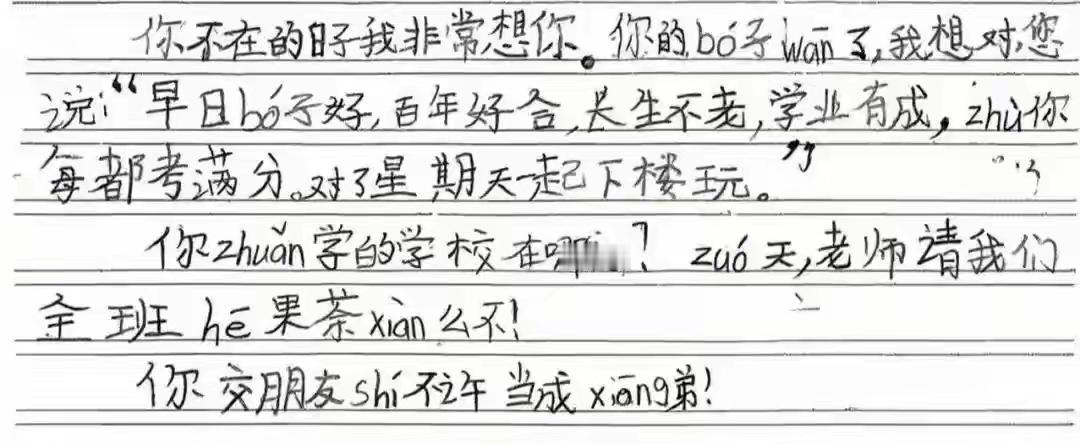 你不在的日子我非常想你。你的bó子wān了,我想对您
说:“早日bó子好,百年好合,长生不老,学业有成,zhù你
每都考满分。对了星期天一起下楼玩。”
你zhuǎn学的学校在哪?zuó天,老师请我们
全班hē果茶xiàn么不!
你交朋友shí不许当成xiōng弟!